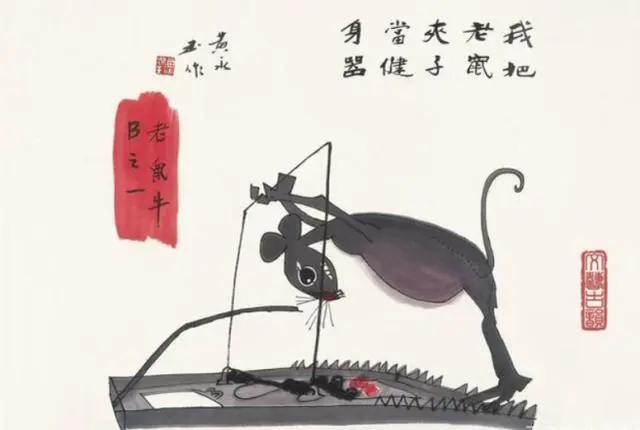 我把
老鼠
夾子
當健
身器
黃永
玉作
老鼠牛
B之一